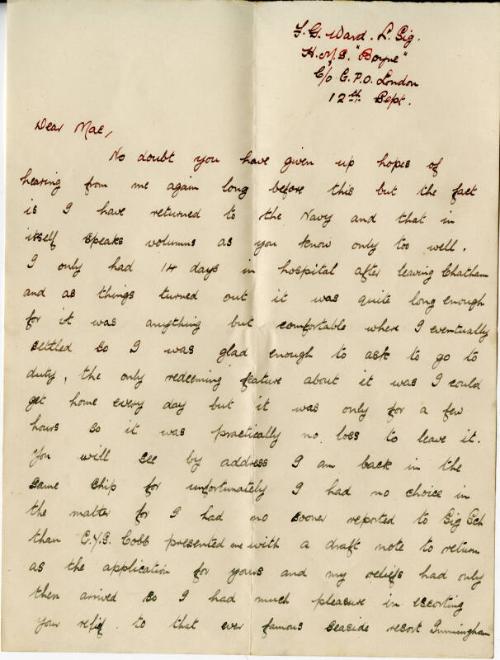 F. G. Ward. L/Sig.
H.M.S. "Boyne"
C/o G.P.O. London
12th Sept.
Dear Mac,
No doubt you have given up hopes of
hearing from me again long before this but the fact
is I have returned to the Navy and that in
itself speaks volumns as you know only too well.
I only had 14 days in hospital after leaving Chatham
and as things turned out it was quite long enough
for it was anything but comfortable where I eventually
settled so I was glad enough to ask to go to
duty, the only redeeming feature about it was I could
get home every day but it was only for a few
hours so it was practically no loss to leave it.
You will see by address I am back in the
same ship for unfortunately I had no choice in
the matter for I had no sooner reported to Sig Sch
than C.Y.S. Cobb presented me with a draft note to return
as the application for yours and my reliefs had only
then arrived so I had much pleasure in escorting
your relief to that ever famous seaside resort Immingham